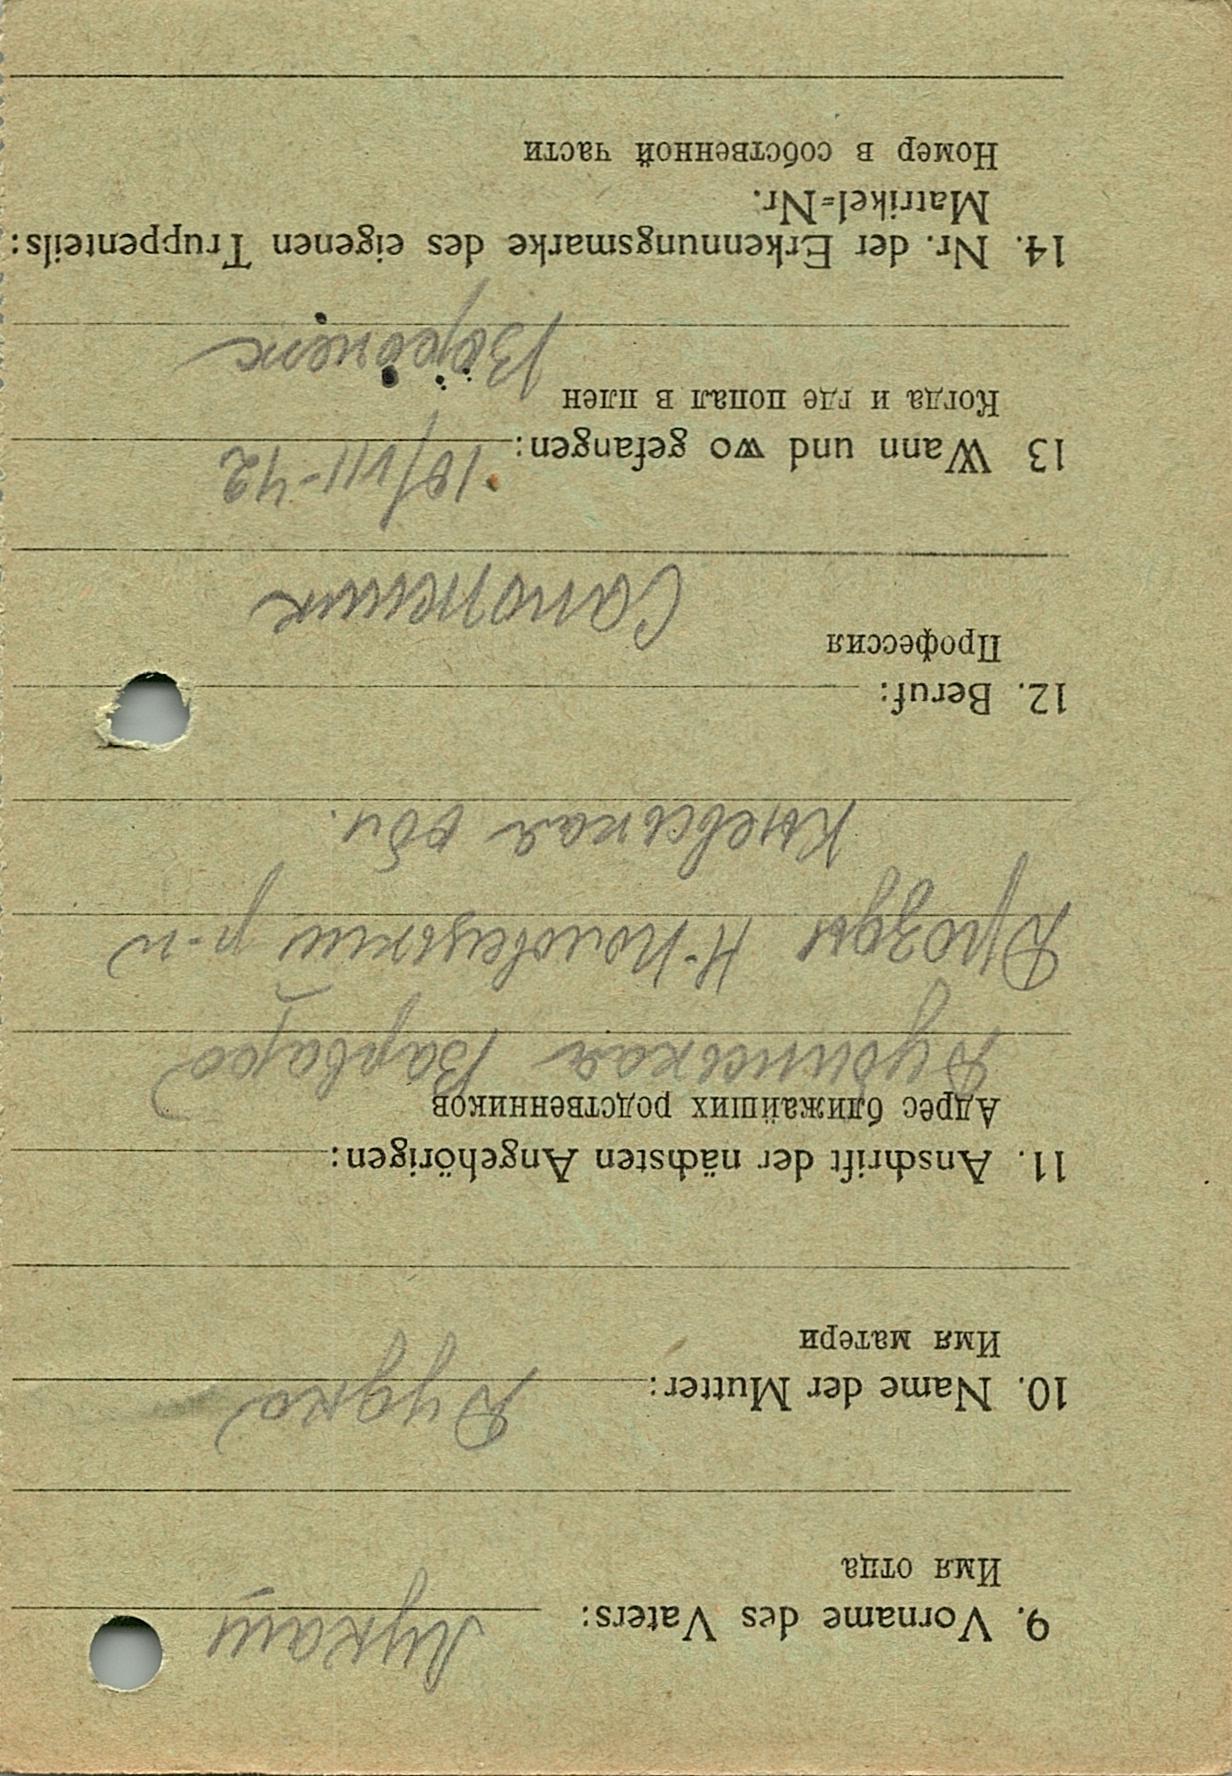 9. Vorname des Vaters: Лукаш
Имя отца
10. Name der Mutter: Дудка
Имя матери
11. Anschrift der nächsten Angehörigen:
Адрес ближайших родственников
Дубинськая Варвара
Дрозды Н-Половецький р-н
Кыевськая обл.
12. Beruf:
Профессия
Сапожник
13 Wann und wo gefangen: 10/VII-42
Когда и где попал в плен
Воронеж
14. Nr. der Erkennungsmarke des eigenen Truppenteils:
Matrikel=Nr.
Номер в собственной части